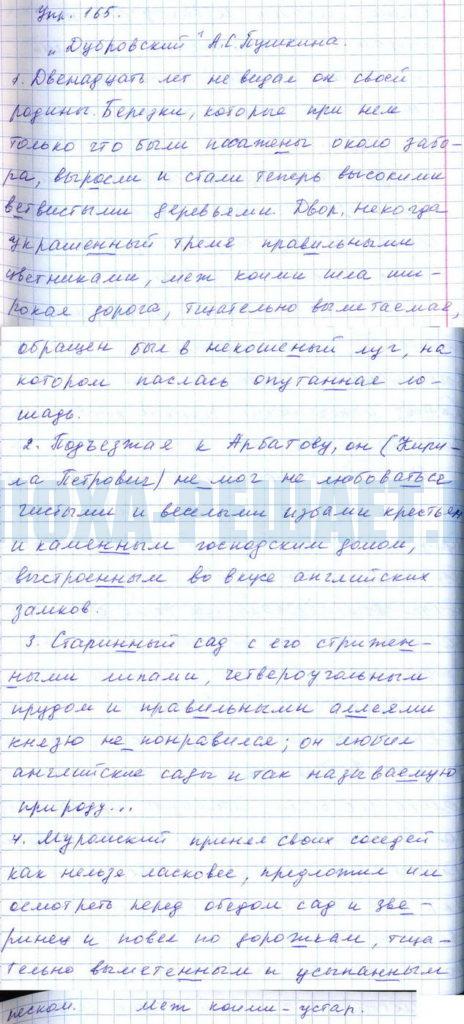 Упр. 165.
„Дубровский" А.С. Пушкина.
1. Двенадцать лет не видал он своей
родины. Березки, которые при нем
только что были посажены около забо-
ра, выросли и стали теперь высокими
ветвистыми деревьями. Двор, некогда
украшенный тремя правильными
цветниками, меж коими шла ши-
рокая дорога, тщательно выметаемая,
обращен был в некошеный луг, на
котором паслась опутанная ло-
шадь.
2. Подъезжая к Арбатову, он (Кири-
ла Петрович) не мог не любоваться
чистыми и веселыми избами крестьян
и каменным господским домом,
выстроенным во вкусе английских
замков.
3. Старинный сад с его стрижен-
ными липами, четвероугольным
прудом и правильными аллеями
князю не понравился; он любил
английские сады и так называемую
природу...
4. Муромский принял своих соседей
как нельзя ласковее, предложил им
осмотреть перед обедом сад и зве-
ринец и повел по дорожкам, тща-
тельно выметенным и усыпанным
песком. Меж коими - устар.